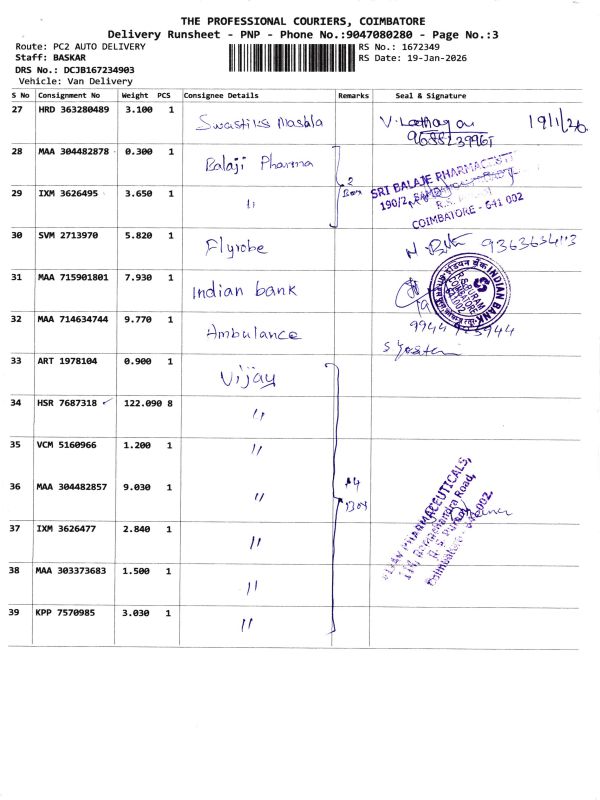 THE PROFESSIONAL COURIERS, COIMBATORE
Delivery Runsheet - PNP - Phone No.:9047080280 - Page No.:3
Route: PC2 AUTO DELIVERY
RS No.: 1672349
Staff: BASKAR
RS Date: 19-Jan-2026
DRS No.: DCJB167234903
Vehicle: Van Delivery
S No Consignment No Weight PCS Consignee Details Remarks Seal & Signature
27 HRD 363280489 3.100 1 Swastiks Masala 19/1/26
28 MAA 304482878 0.300 1 Balaji Pharma 2 Box
29 IXM 3626495 3.650 1 "
SRI BALAJE PHARMACEUTI
190/2,
R.S.
COIMBATORE - 641 002
30 SVM 2713970 5.820 1 Flyrobe
31 MAA 715901801 7.930 1 Indian bank
INDIAN BANK
COIMBATORE
32 MAA 714634744 9.770 1 Ambulance
33 ART 1978104 0.900 1 Vijay
34 HSR 7687318 ✓ 122.090 8 "
35 VCM 5160966 1.200 1 "
36 MAA 304482857 9.030 1 " Box
37 IXM 3626477 2.840 1 "
38 MAA 303373683 1.500 1 "
39 KPP 7570985 3.030 1 "
PHARMACEUTICALS,
Ramachandra Road,
R. S. Puram,
Coimbatore